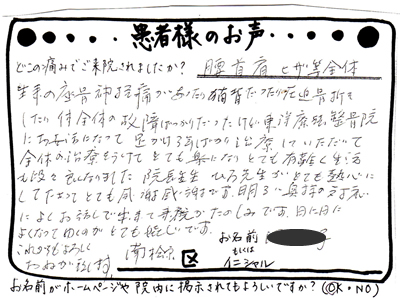 患者様のお声
どこの痛みでご来院されましたか? 腰首肩ヒザ等全体
生来の座骨神経痛があったり猫背だったり圧迫骨折を
したり体全体の故障ばっかりだったけど東洋療法整骨院
にお世話になって 年ばかり治療していただいて
全体の治療をうけてとても楽になりとても有難く生活
も段々良くなりました 院長先生 ひろ先生がとても熱心に
して下さってとても感謝感謝です。明るく奥様の対応
によくお話しできて来院がたのしみです。日に日に
よくなってゆくのがとても嬉しいです。
これからもよろしく
おねがい致します
お名前 子
もしくは
イニシャル
南松京 区
お名前がホームページや院内に掲示されてもよろしいですか? (OK・NO)